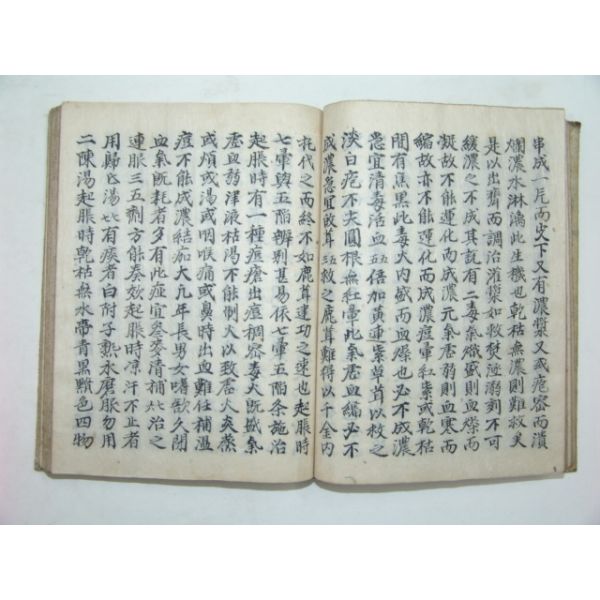 串成一片而皮下又有濃漿又或瘡密而潰
爛濃水淋漓此生機也乾枯無濃則難救矣
是以出齊而調治灌漿如救焚逐溺刻不可
緩濃之不成其說有二毒氣熾盛則血燥而
凝故不能運化而成濃元氣虛弱則血寒而
縮故亦不能運化而成濃痘暈紅紫或乾枯
間有焦黑此毒火內盛而血燥也必不成濃
急宜清毒活血 倍加黃連紫草茸以救之
淡白疱不尖圓根無紅暈此氣虛血縮必不
成濃急宜 救之鹿茸難得以千金內
托代之而終不如鹿茸建功之速也起脹時
七暈與五陷辨別甚易依七暈五陷条施治
起脹時有一種痘瘡出稠密毒火旣盛氣
虛血弱津液枯渴不能制火以致虛火炎蒸
或煩或渴或咽喉痛或鼻時出血難任補溫
痘不能成濃結加大凡年長男女嗜慾久閉
血氣旣耗者多有此症宜參麥清補 治之
連服三五劑方能奏效起脹時凉汗不止者
用歸 湯 有痰者白附子熱水磨服勿用
二陳湯起脹時乾枯無水帶青黑黯色四物